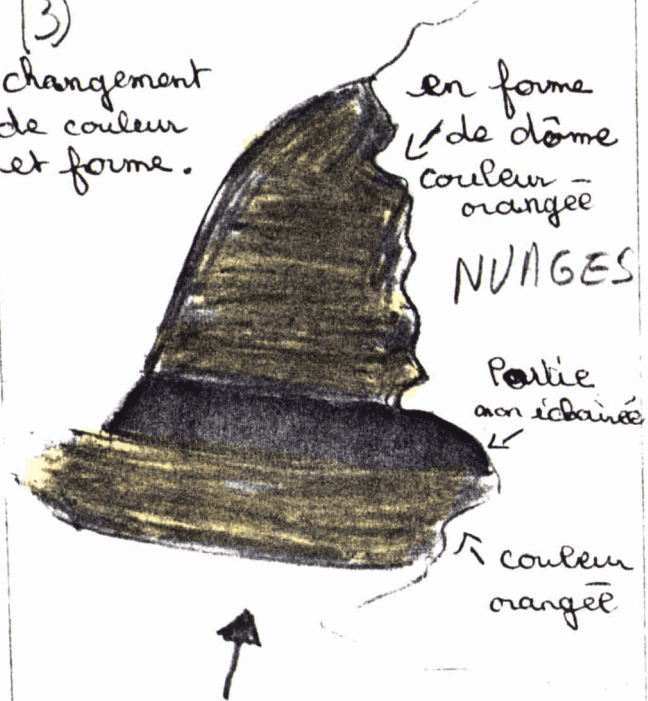 (3)
changement
de couleur
et forme.
en forme
de dôme
couleur -
orangée
NUAGES
Partie
non éclairée
couleur
orangée